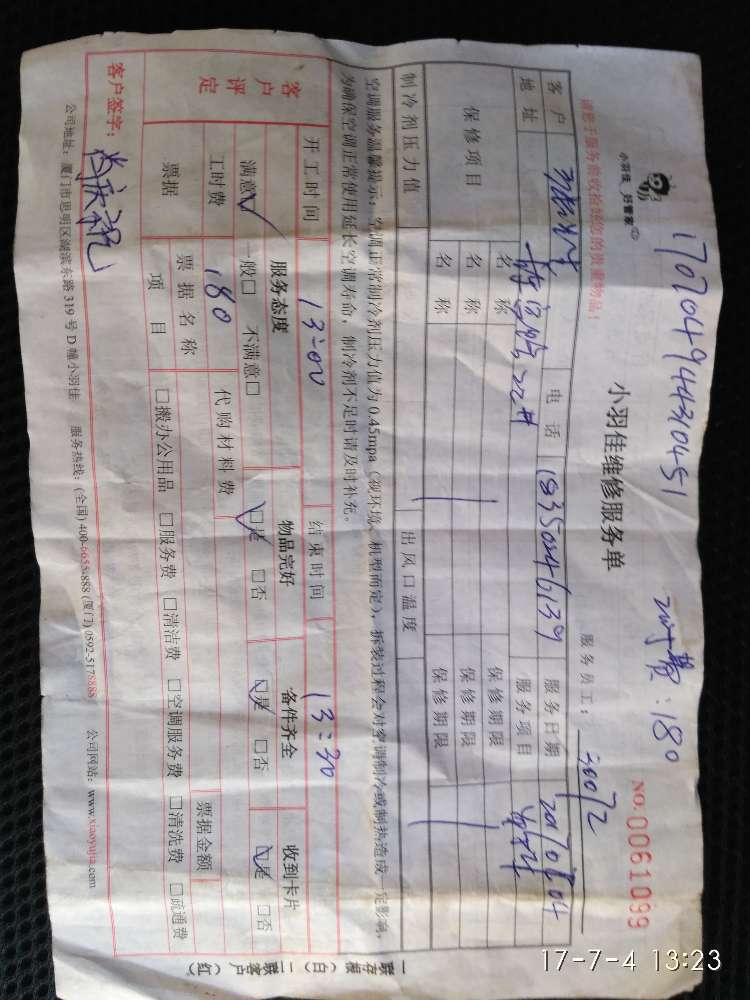 170704944310451
工时费:180
小羽佳 好管家
小羽佳维修服务单
NO.0061099
请您于服务前收捡好您的贵重物品!
服务员工:
客户 电话 服务日期
地址 22# 服务项目
保修项目 名称 保修期限
名称 保修期限
名称 保修期限
制冷剂压力值 出风口温度
空调服务温馨提示:空调正常制冷剂压力值为0.45mpa(视环境、机型而定),拆装过程会对空调制冷或制热造成一定影响,
为确保空调正常使用延长空调寿命,制冷剂不足时请及时补充。
开工时间 13:00 结束时间 13:30
客户评定 服务态度 物品完好 备件齐全 收到卡片
满意☑ 一般□ 不满意□ ☑是 □否 ☑是 □否 ☑是 □否
工时费 180 代购材料费
票据 票据名称 票据金额
项目 □搬办公用品 □服务费 □清洁费 □空调服务费 □清洗费 □疏通费
客户签字:
公司地址:厦门市思明区湖滨东路319号D幢小羽佳 服务热线:(全国)400-6655-888 (厦门)0592-5178888 公司网站:www.xiaoyujia.com
一联存根(白)二联客户(红)
17-7-4 13:23